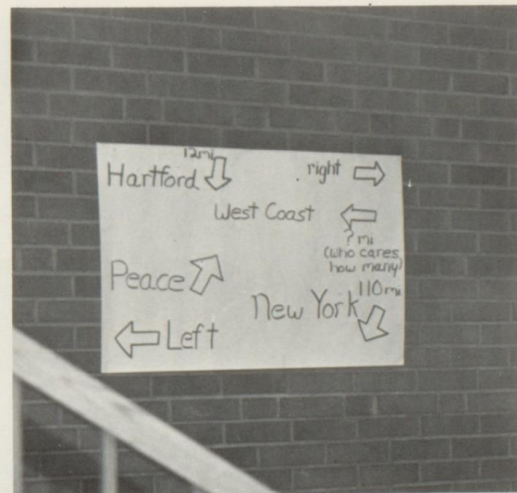 12mi
Hartford
right
West Coast
? mi
(who cares
how many)
Peace
New York
110mi
Left